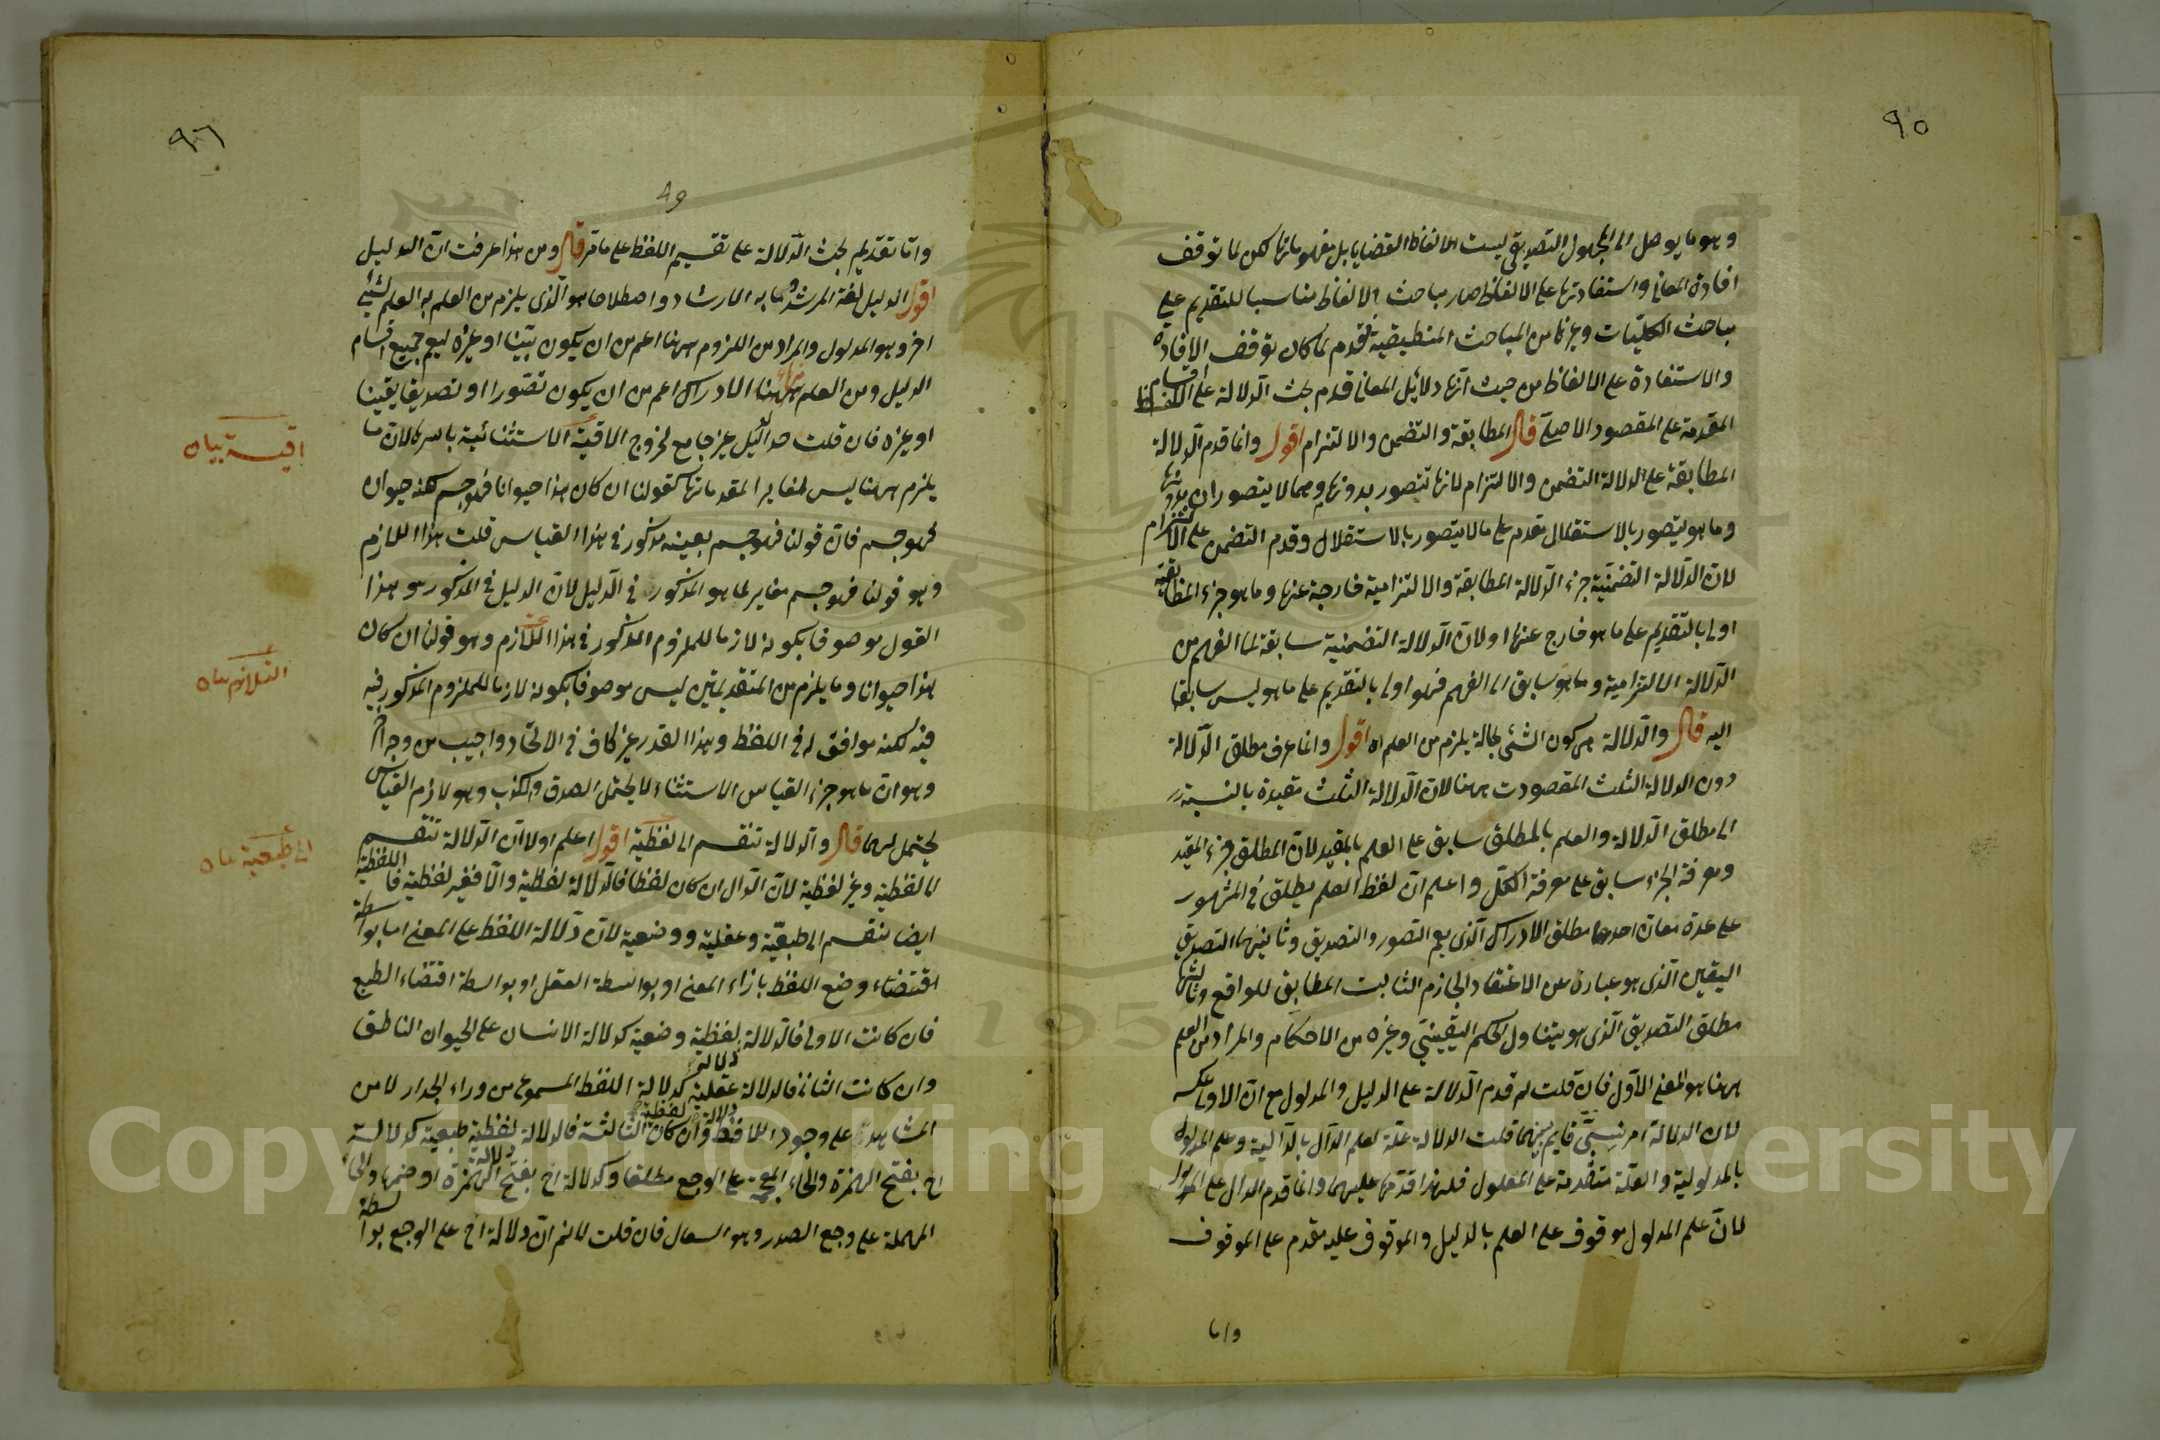 ٩٥
وهو ما يوصل الى المجهول التصديقي ليست الالفاظ القضايا بل مفهوماتها لكن لما توقف
افادة المعاني واستفادتها على الالفاظ صار مباحث الالفاظ مناسبا للتقديم على
مباحث الكليات وغيرها من المباحث المنطيقية فقدم لما كان توقف الافادة
والاستفادة على الالفاظ من حيث انها دلائل المعاني قدم بحث الدلالة على اقسام
المقدمة على المقصود الاصلى قال المطابقة والتضمن والالتزام اقول وانما قدم الدلالة
المطابقة على الدلالة التضمن والالتزام لانها تتصور بدونهم وهما لا يتصوران بدونها
وما هو يتصور بالاستقلال مقدم على ما لا يتصور بالاستقلال وقدم التضمن على الالتزام
لان الدلالة التضمنية جزء الدلالة المطابقة والالتزامية خارجة عنها وما هو جزء المطابقة
اولى بالتقديم على ما هو خارج عنها اولان الدلالة التضمنية سابقة لما الفهم من
الدلالة الالتزامية وما هو سابق الى الفهم فهو اولى بالتقديم على ما هو ليس سابقا
اليه قال والدلالة هى كون الشئ بحالة يلزم من العلم اه اقول وانما عرف مطلق الدلالة
دون الدلالة الثلث المقصودت ههنا لان الدلالة الثلث مقيدة بالنسبة
الى مطلق الدلالة والعلم بالمطلق سابق على العلم بالمقيد لان المطلق جزء المقيد
ومعرفة الجزء سابق على معرفة الكل واعلم ان لفظ العلم يطلق في المشهور
على عدة معان احدها مطلق الادراك الذى يعم التصور والتصديق وثانيها التصديق
اليقين الذى هو عبارة عن الاعتقاد الجازم الثابت المطابق للواقع وثالثها
مطلق التصديق الذى هو يتناول الحكم اليقيني وغيره من الاحكام والمراد من العلم
ههنا هو المعنى الاول فان قلت لم قدم الدلالة على الدليل والمدلول مع ان الاولى عكسه
لان الدلالة امر نسبى قايم بينهما قلت الدلالة علة لعلم الدال بالدالية وعلم المدلول
بالمدلولية والعلة متقدمة على المعلول فلهذا قدمها عليهما وانما قدم الدال على المدلول
لان علم المدلول موقوف على العلم بالدليل والموقوف عليه مقدم على الموقوف
واما
٩٦
49
واما تقديم بحث الدلالة على تقسيم اللفظ على ما مر قال ومن هذا عرفت ان الدليل
اقول الدليل لغة المرشد وما به الارشاد واصطلاحا هو الذى يلزم من العلم به العلم لشئ
اخر وهو المدلول والمراد من اللزوم ههنا اعم من ان يكون بينا او غيره ليعم جميع اقسام
الدليل ومن العلم ههنا الادراك اعم من ان يكون تصورا او تصديقا يقينا
او غيره فان قلت حد الدليل غير جامع لخروج الاقية الاستثنائية باسرها لان ما
يلزم ههنا ليس لمغاير المقدماتها كقولنا ان كان هذا حيوانا فهو جسم لكنه حيوان
فهو جسم فان قولنا فهو جسم بعينه مذكور فى هذا القياس قلت هذا اللازم
وهو قولنا فهو جسم مغاير لما هو المذكور فى الدليل لان الدليل فى المذكور هو هذا
القول موصوفا بكونه لازما للملزوم المذكور فى هذا اللازم وهو قولنا ان كان
هذا حيوانا وما يلزم من المتقدمتين ليس موصوفا بكونه لازما للملزوم المذكور فيه
فيه لكنه موافق له فى اللفظ وهذا القدر غير كاف فى الاتحاد واجيب من وجه اخر
وهو ان ما هو جزء القياس الاستثناء لا يحتمل الصدق والكذب وهو لازم القياس
يحتمل لهما قال والدلالة تنقسم الى لفظية اقول اعلم اولا ان الدلالة تنقسم
لما لفظية وغير لفظية لان الدال ان كان لفظا فالدلالة لفظية والا فغير لفظية فاللفظية
ايضا ينقسم الى طبعية وعقلية ووضعية لان دلالة اللفظ على المعنى اما بواسطة
اقتضاء وضع اللفظ بازاء المعنى او بواسطة العقل او بواسطة اقتضاء الطبع
فان كانت الاولى فالدلالة لفظية وضعية كدلالة الانسان على الحيوان الناطق
وان كانت الثانى فالدلالة عقلية كدلالة اللفظ المسموع من وراء الجدار لا من
المشاهدة على وجود اللافظ وان كان الثالثة فالدلالة لفظية طبعية كدلالة
اخ بفتح الهمزة والخاء المعجمة على الوجع مطلقا وكدلالة اح بفتح الهمزة او ضمها والحاء
المهملة على وجع الصدر وهو السعال فان قلت لا نم ان دلالة اخ على الوجع بواسطة
اقيسة بيان
اللازم بيان
الى طبعية بيان
Copyright © King Saud University
195